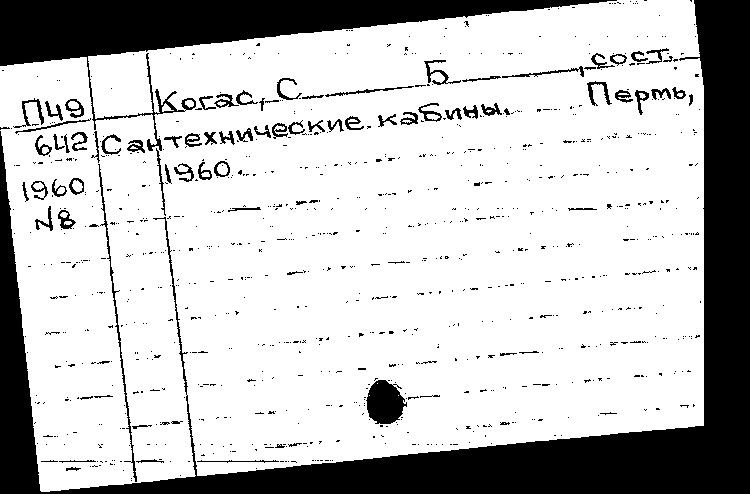 П49 Когас, С Б , сост.
642 Сантехнические кабины. Пермь,
1960 1960.
N8